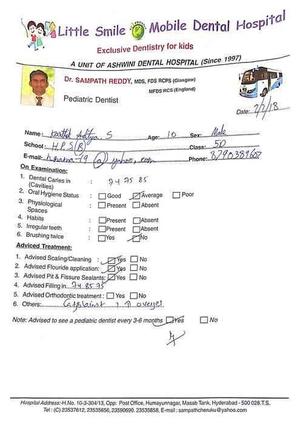 Little Smile Mobile Dental Hospital
Exclusive Dentistry for kids
A UNIT OF ASHWINI DENTAL HOSPITAL (Since 1997)
Dr. SAMPATH REDDY, MDS, FDS RCPS (Glasgow)
MFDS RCS (England)
Pediatric Dentist
Date: 2/7/18
Name: Aditya. S Age: 10 Sex: Male
School: H.P.S (R) Class: 5D
E-mail: @ yahoo.com Phone:
On Examination:
1. Dental Caries in : 74 75 85
(Cavities)
2. Oral Hygiene Status : Good Average Poor
3. Physiological : Present Absent
Spaces
4. Habits : Present Absent
5. Irregular teeth : Present Absent
6. Brushing twice : Yes No
Adviced Treatment:
1. Advised Scaling/Cleaning : Yes No
2. Advised Flouride application: Yes No
3. Advised Pit & Fissure Sealants: Yes No
4. Advised Filling in 74 85 75
5. Advised Orthodontic treatment : Yes No
6. Others: Complaint
Note: Advised to see a pediatric dentist every 3-6 months Yes No
Hospital Address:-H.No. 10-3-304/13, Opp: Post Office, Humayunnagar, Masab Tank, Hyderabad - 500 028.T.S.
Tel : (C) 23537612, 23535656, 23590690, 23535858. E-mail : sampathcheruku@yahoo.com